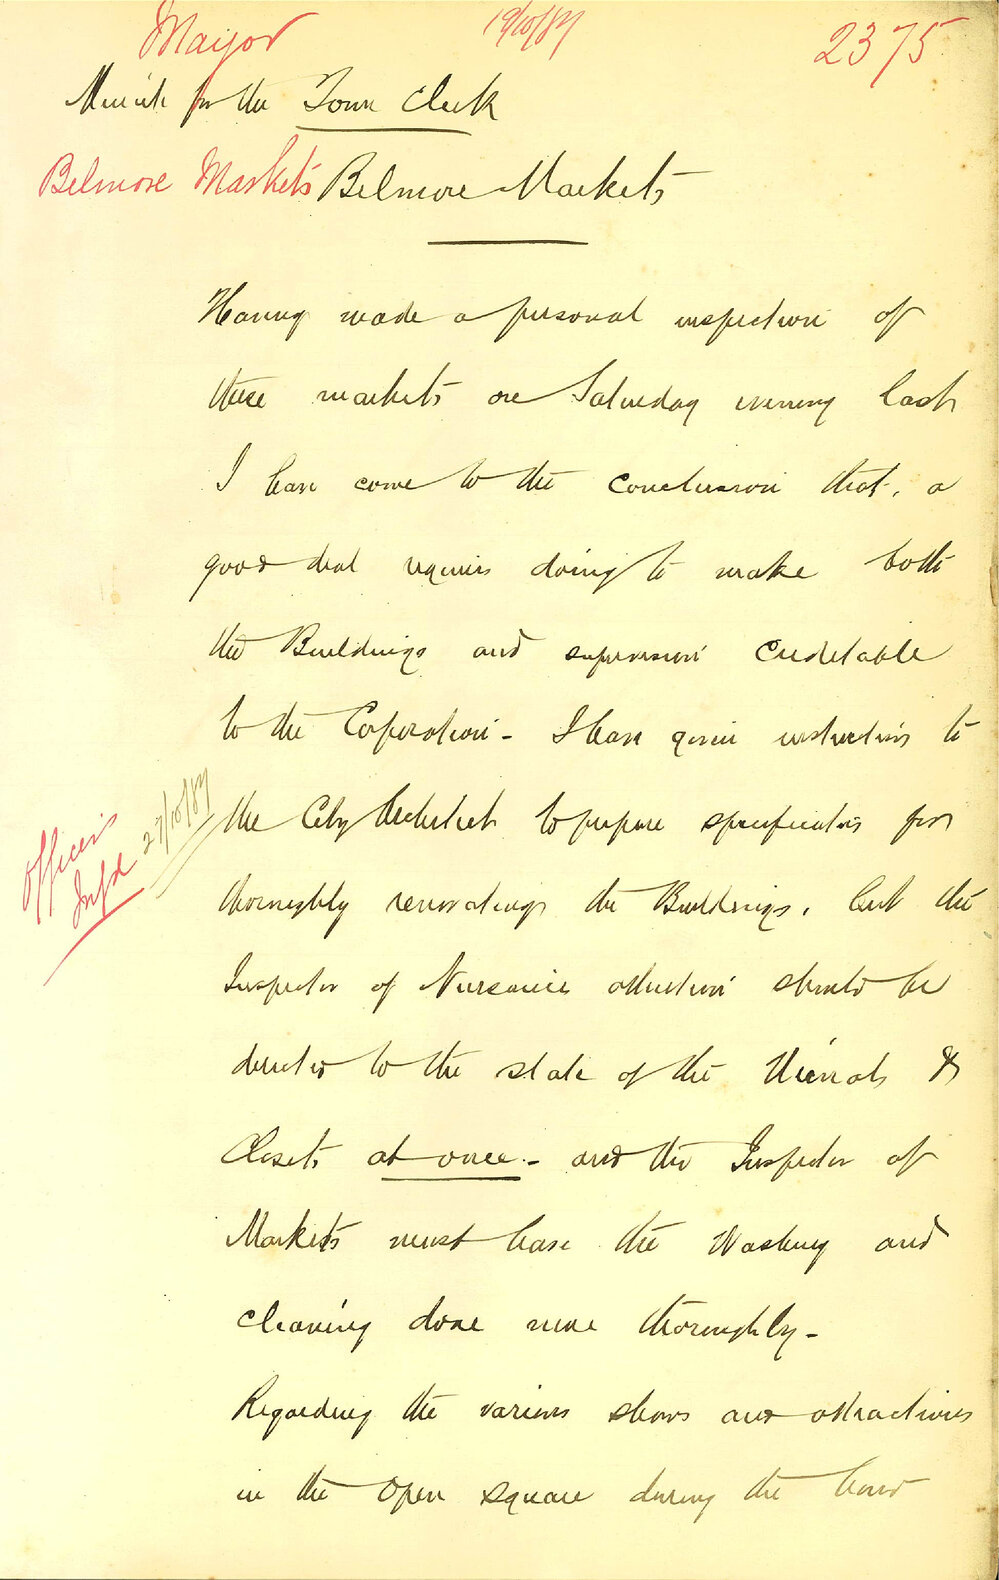 Mayor
19/10/87
2375
Minute for the Town Clerk
Belmore Markets
Belmore Markets
Having made a personal inspection of
these markets on Saturday evening last
I have come to the conclusion that, a
good deal requires doing to make both
the Buildings and supervision Creditable
to the Corporation - I have given instructions to
the City Architect to prepare specifications for
thoroughly renovating the Buildings, but the
Inspector of Nuisances attention should be
directed to the state of the Urinals &
Closets at once - and the Inspector of
Markets must have the Washing and
cleaning done more thoroughly -
Regarding the various shows and attractions
in the open square during the
Officers
Infd
27/10/87